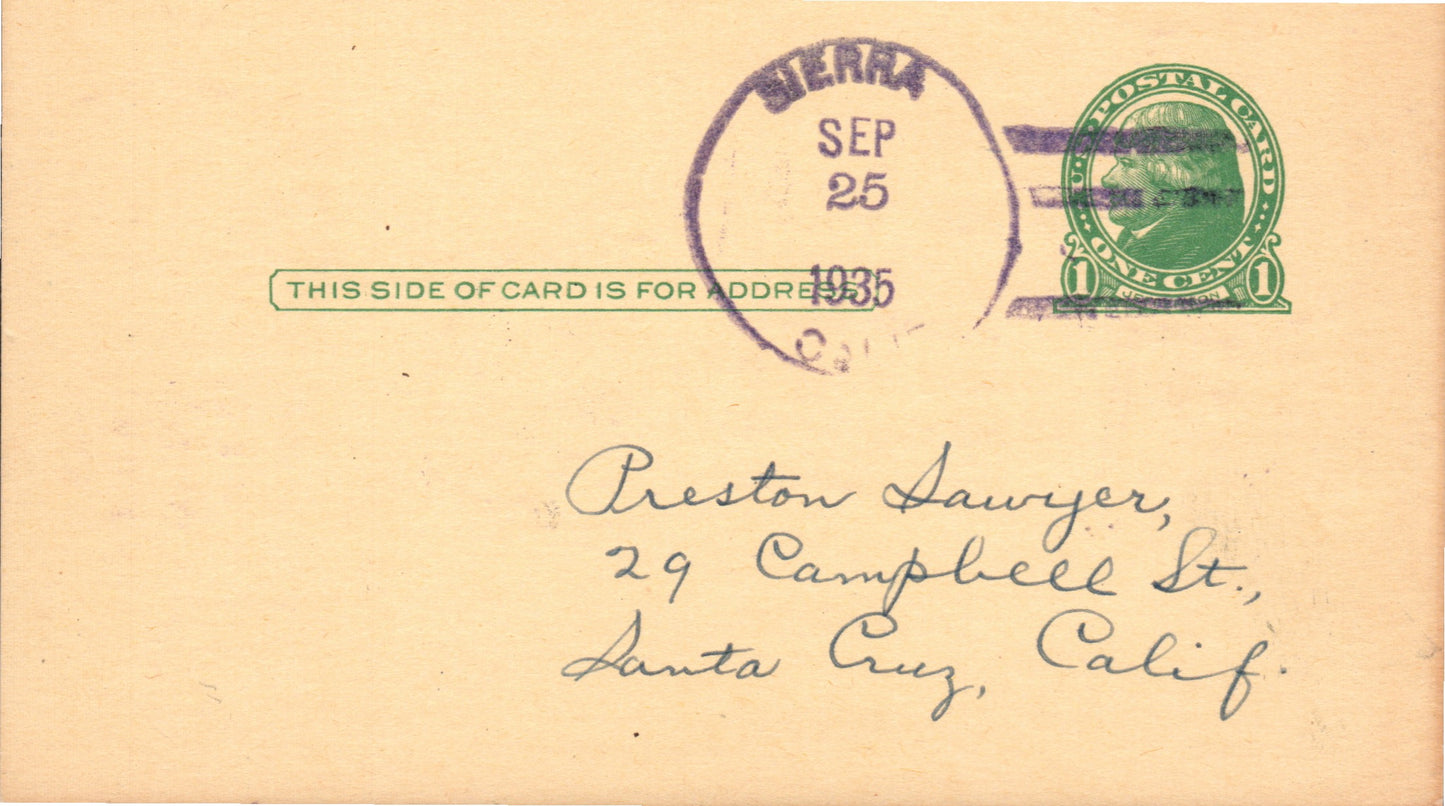 SIERRA
SEP
25
1935
CALIF
U·S·POSTAL CARD
ONE CENT
1 JEFFERSON 1
THIS SIDE OF CARD IS FOR ADDRESS
Preston Sawyer,
29 Campbell St.,
Santa Cruz, Calif.